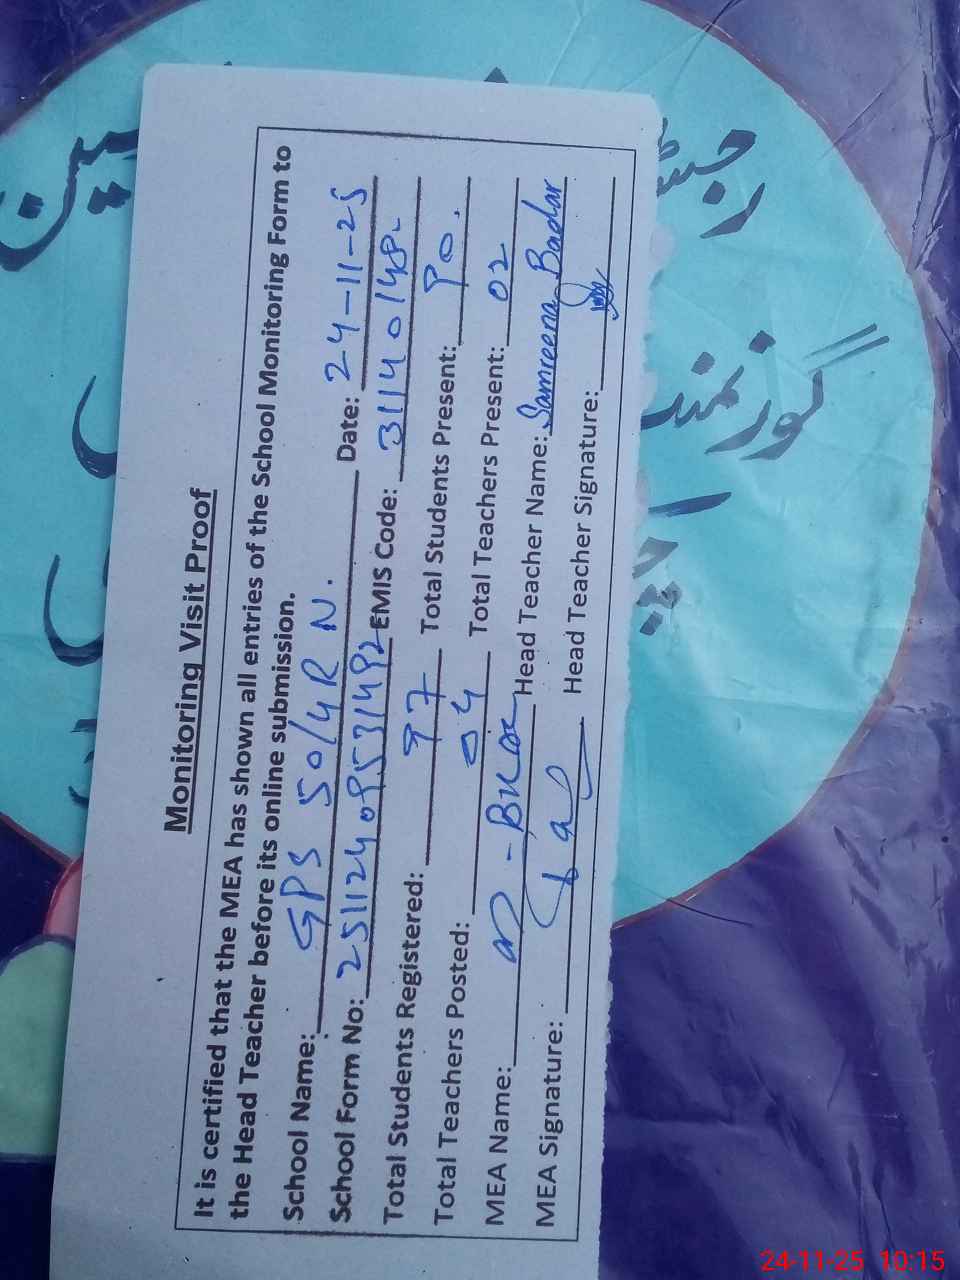 Monitoring Visit Proof
It is certified that the MEA has shown all entries of the School Monitoring Form to
the Head Teacher before its online submission.
School Name: GPS 50/4R N. Date: 24-11-25
School Form No: EMIS Code: 31140148-
Total Students Registered: 97 Total Students Present: 90.
Total Teachers Posted: 04 Total Teachers Present: 02
MEA Name: Head Teacher Name: Samreena Badar
MEA Signature: Head Teacher Signature:
گورنمنٹ
24-11-25 10:15